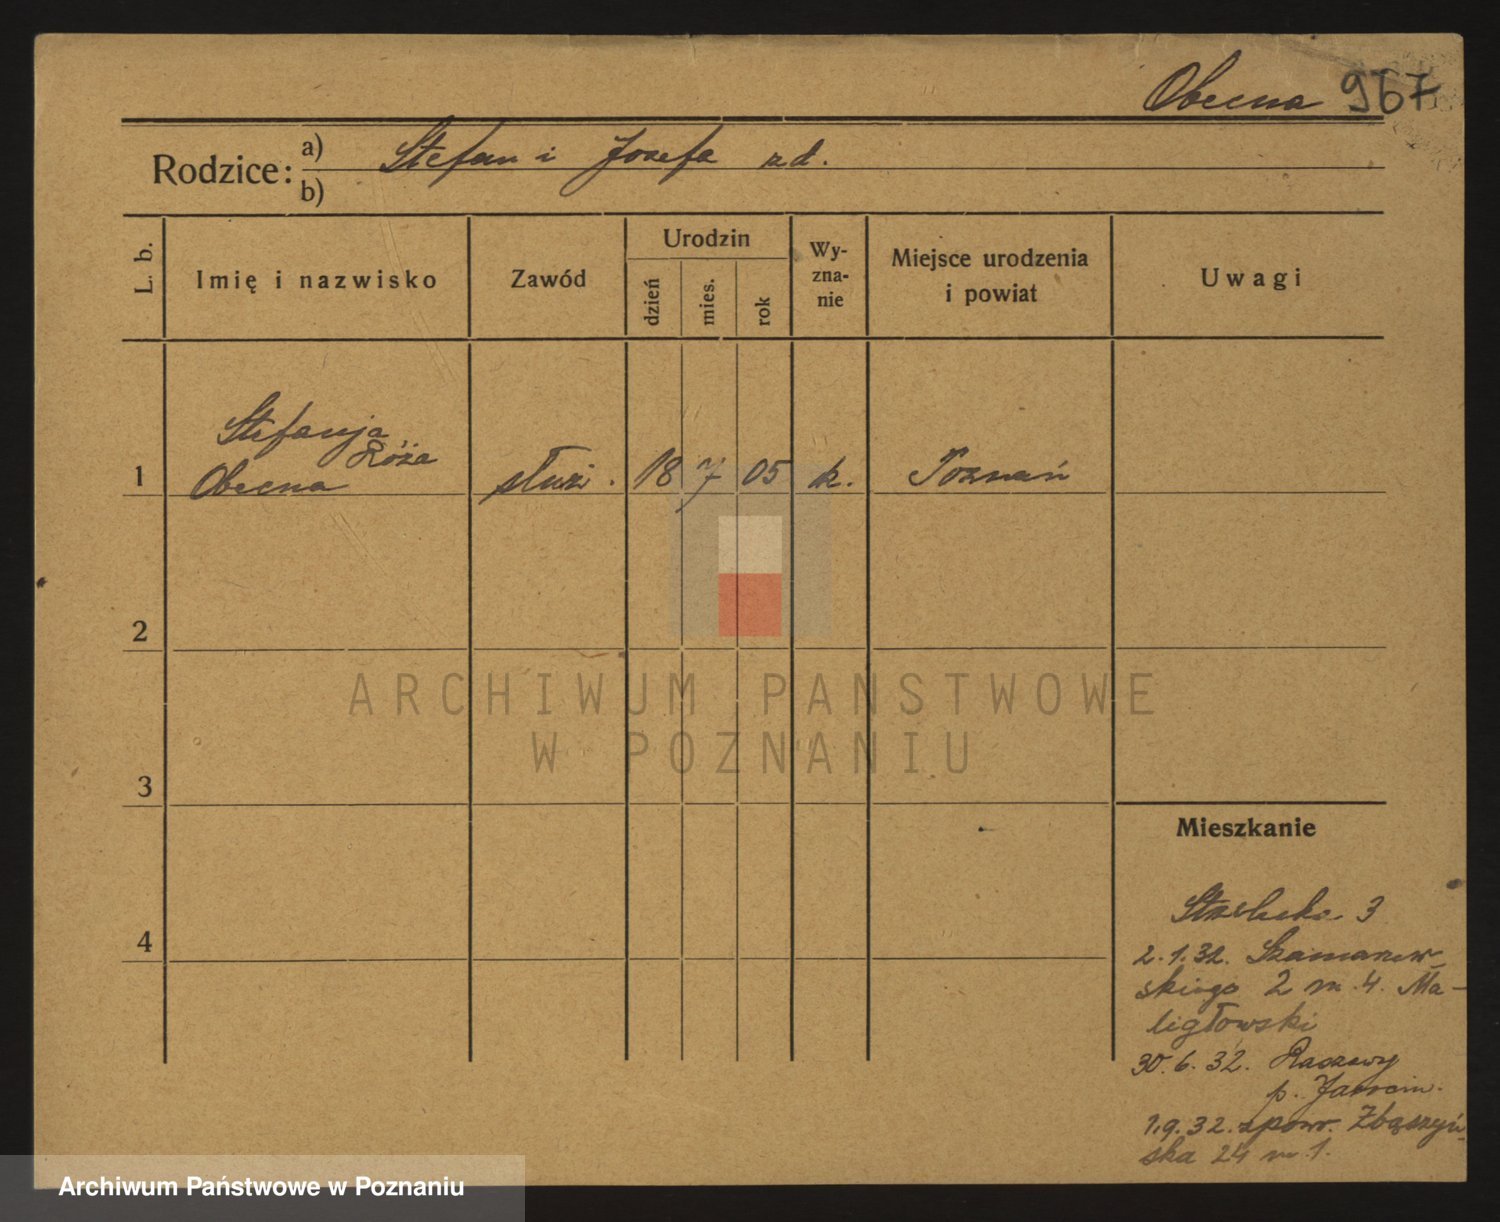 Obecna 967
Rodzice: a) Stefan i Józefa zd.
b)
L. b.
Imię i nazwisko
Zawód
Urodzin
dzień
mies.
rok
Wy-
zna-
nie
Miejsce urodzenia
i powiat
Uwagi
Stefanja
Róża
1 Obecna służ. 18 7 05 k. Poznań
2
3
4
ARCHIWUM PAŃSTWOWE
W POZNANIU
Mieszkanie
3
2.1.32. Szamarzew-
skiego 2 m. 4. Ma-
ligłowski
30.6.32. Raszewy
p. Jarocin.
1.9.32. zpow. Zbąszyń-
ska 24 m. 1.
Archiwum Państwowe w Poznaniu